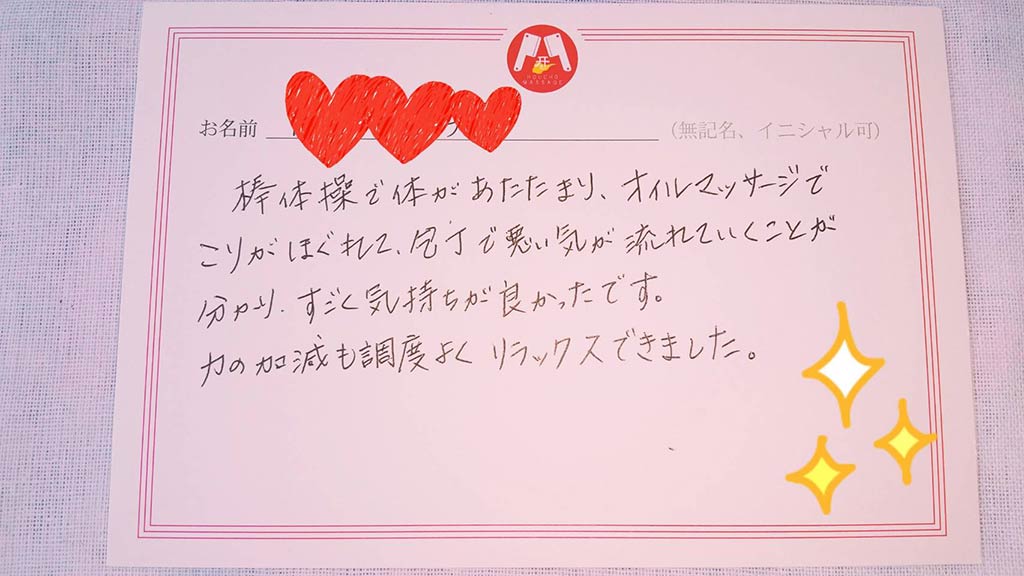 HOUCHO
MASSAGE
お名前 (無記名、イニシャル可)
棒体操で体があたたまり、オイルマッサージで
こりがほぐれて、包丁で悪い気が流れていくことが
分かり、すごく気持ちが良かったです。
力の加減も調度よくリラックスできました。